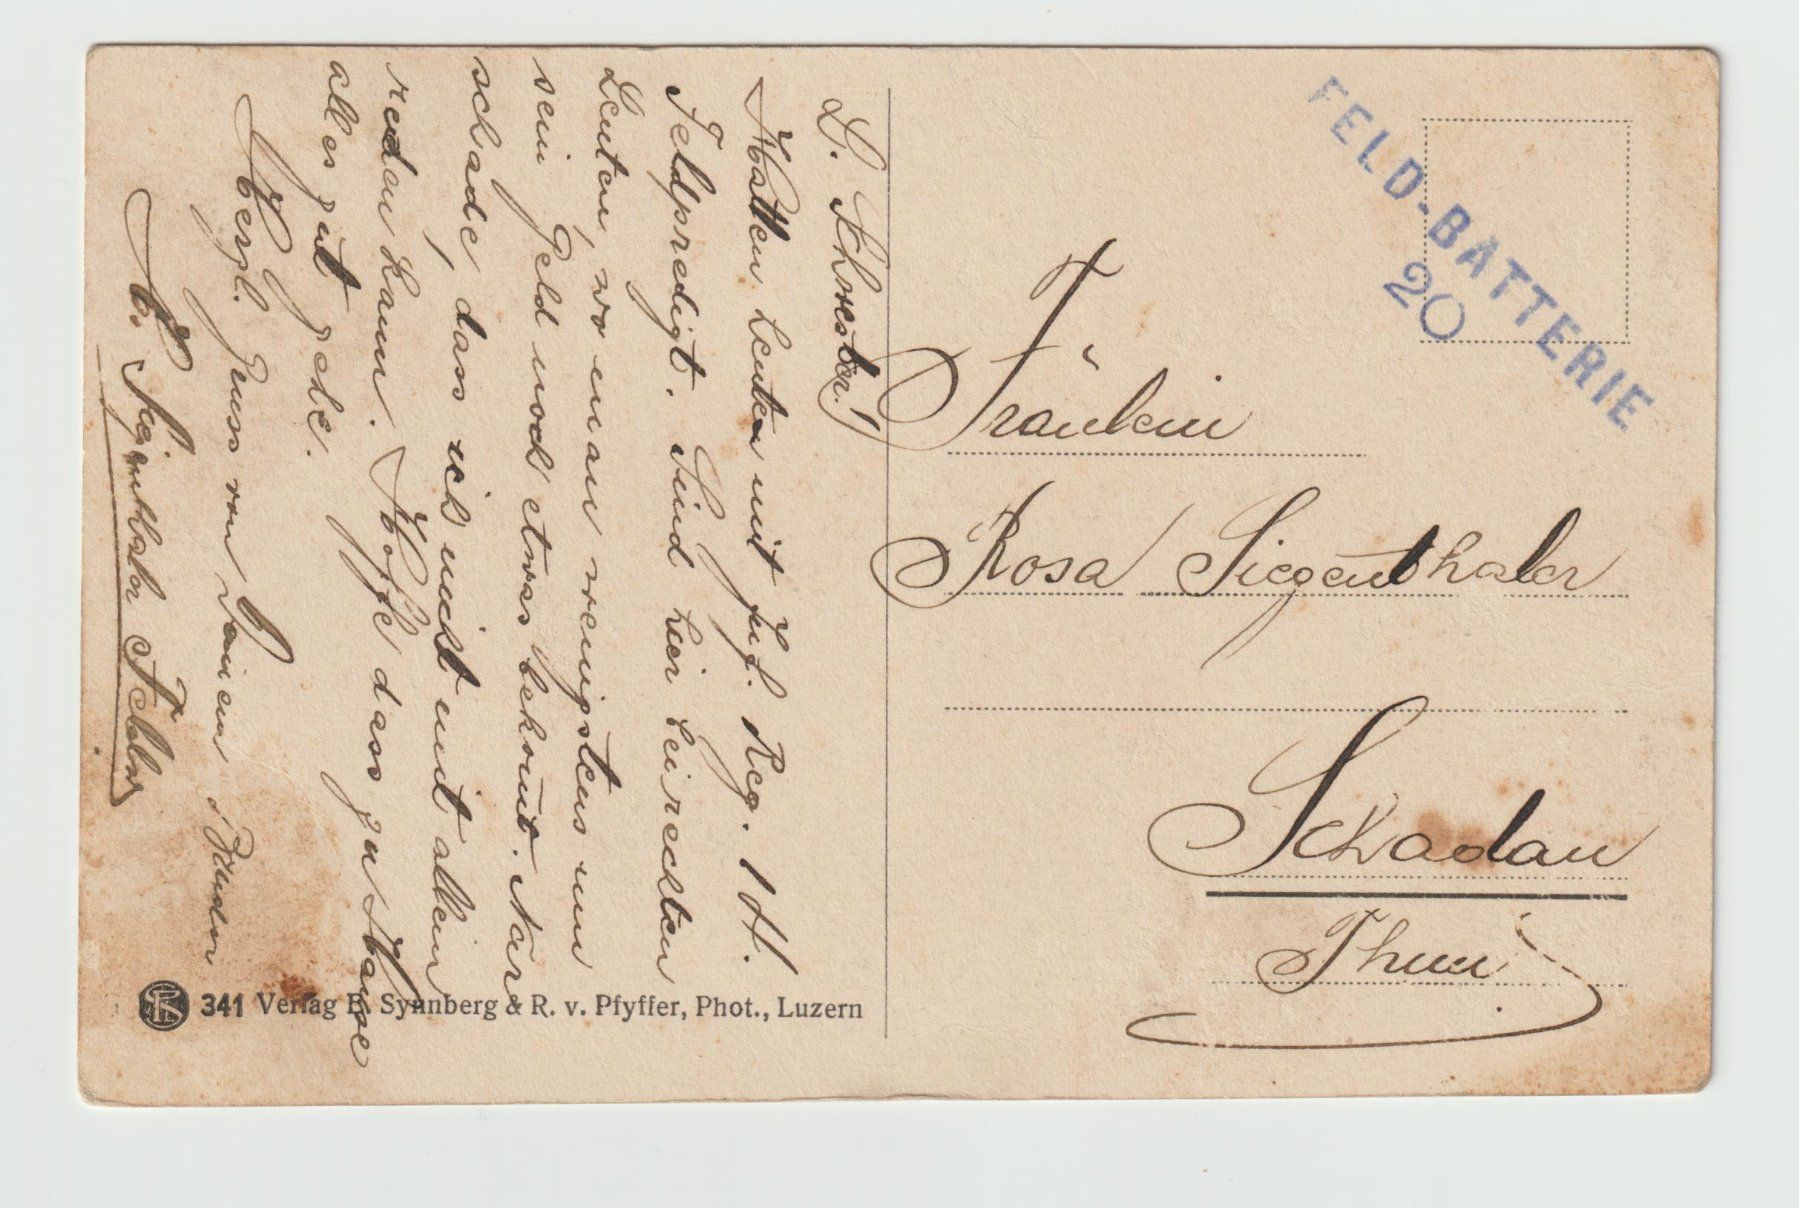 L. Schwester!
Hatten heute mit Inf. Reg. 14.
Feldpredigt. Sind hier bei rechten
Leuten, wo man wenigstens um
sein Geld noch etwas bekomt. Nur
schade, dass ich nicht mit allein
reden kann. Hoffe dass zu Hause
alles gut gehe.
Herzl. Gruss von Deinem Bruder
Siegenthaler
FELD-BATTERIE
20
Fräulein
Rosa Siegenthaler
Schadau
Thun
341 Verlag E. Synnberg & R. v. Pfyffer, Phot., Luzern